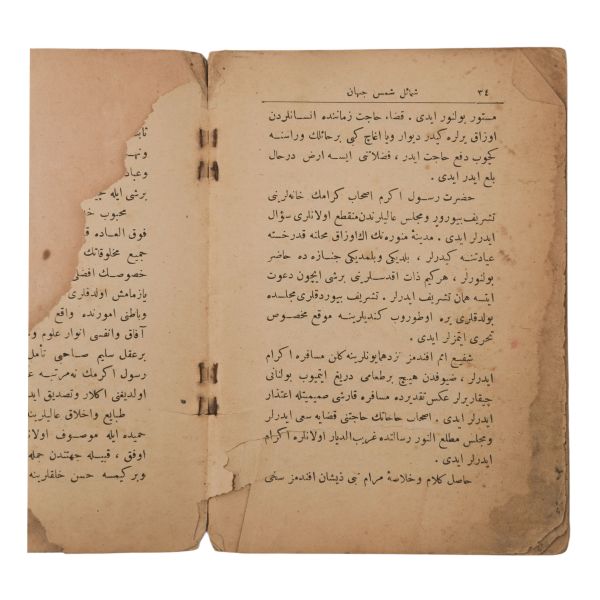 ٣٤
شمائل شمس جهان
مستور بولنور ایدی . قضاء حاجت زماننده انسانلردن
اوزاق یرلره کیدر دیوار ویا اغاچ کبی برحائلك وراسنه
کچوب دفع حاجت ایدر ، فضلاتنی ایسه ارض درحال
بلع ایدر ایدی .
حضرت رسول اکرم اصحاب کرامك خانه‌لرینی
تشریف بیورور ومجلس عالیلرندن منقطع اولانلری سؤال
ایدرلر ایدی . مدینهٔ منوره‌نك اك اوزاق محلنه قدر خسته
عیادتنه کیدرلر ، بلدیکی وبلمدیکی جنازه ده حاضر
بولنورلر ، هرکیم ذات اقدسلرینی برشی ایچون دعوت
ایتسه همان تشریف ایدرلر . تشریف بیوردقلری مجلسده
بولدقلری یره اوطوروب کندیلرینه موقع مخصوص
تحری ایتمزلر ایدی .
شفیع امم افندمز نزدهمایونلرینه کلن مسافره اکرام
ایدرلر ، ضیوفدن هیچ برطعامی دریغ ایتمیوب بولنانی
چیقاررلر عکس تقدیرده مسافره قارشی صمیمیتله اعتذار
ایدرلر ایدی . اصحاب حاجاتك حاجتنی قضایه سعی ایدرلر
ومجلس مطلع النور رسالتده غریب الدیار اولانلره اکرام
ایدرلر ایدی .
حاصل کلام وخلاصهٔ مرام نبی ذیشان افندمز سخی
ونه
وعباد
برشی ایله
محبوب
فوق العاده
جمیع مخلوقاتك
خصوصك افضل
یازمامش اولدقلری
وباطنی امورنده واقع
آفاق وانفسی انوار علوم
برعقل سلیم صاحبی تأمل
رسول اکرمك نه‌مرتبه
اولدیغنی اکلار وتصدیق
طبایع واخلاق عالیلرینه
حمیده ایله موصوف اولان
اوفق ، قبیسله جهتندن جمله
ویرکیمسه حسن خلقلرینه